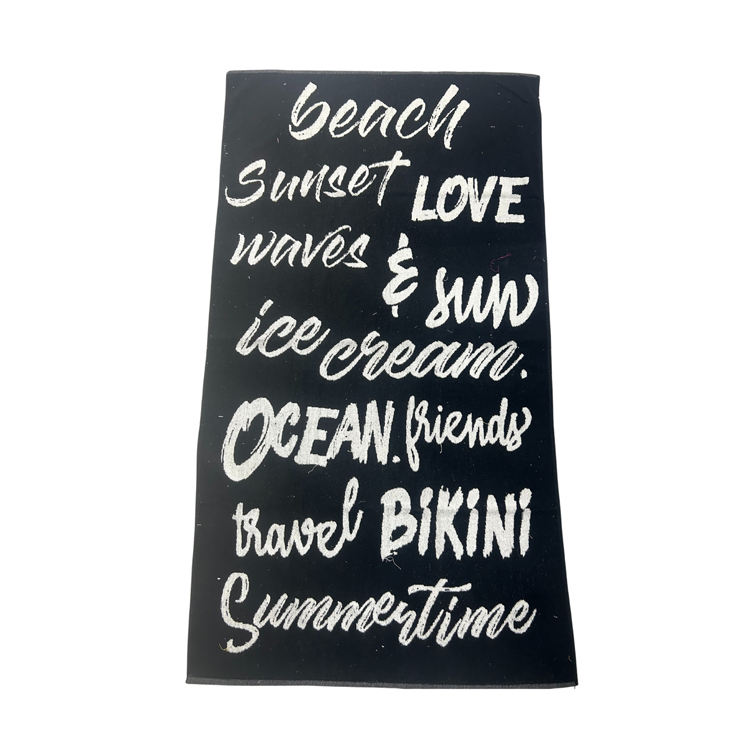 beach
Sunset LOVE
waves & sun
ice cream.
OCEAN. friends
travel BiKiNi
Summertime